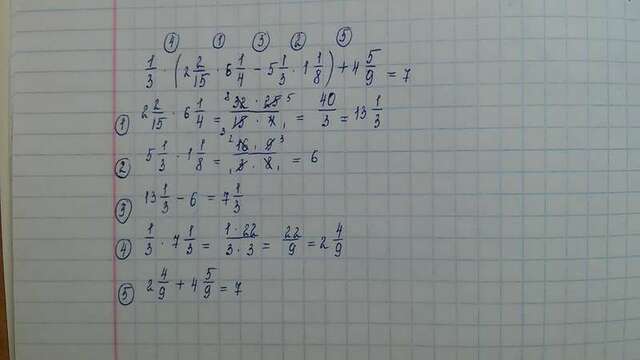 ④ ① ③ ② ⑤
1/3 · (2 2/15 · 6 1/4 - 5 1/3 · 1 1/8) + 4 5/9 = 7
① 2 2/15 · 6 1/4 = 32 · 25 / 15 · 4 = 40/3 = 13 1/3
② 5 1/3 · 1 1/8 = 16 · 9 / 3 · 8 = 6
③ 13 1/3 - 6 = 7 1/3
④ 1/3 · 7 1/3 = 1 · 22 / 3 · 3 = 22/9 = 2 4/9
⑤ 2 4/9 + 4 5/9 = 7